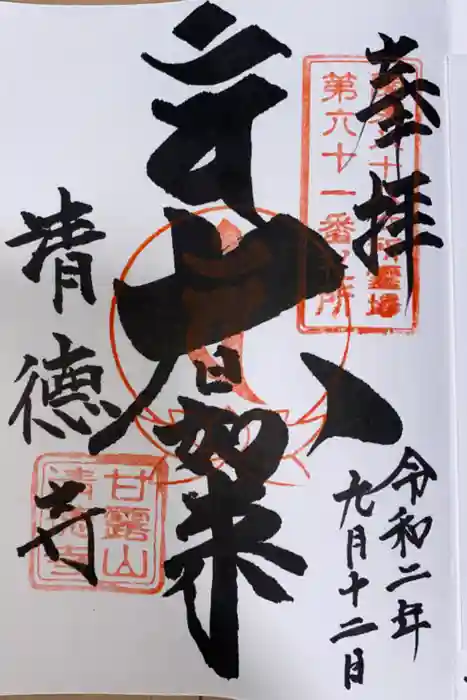 奉拝
所霊場
第六十一番札所
令和二年
九月十二日
日如来
清德寺
甘露山
清徳寺